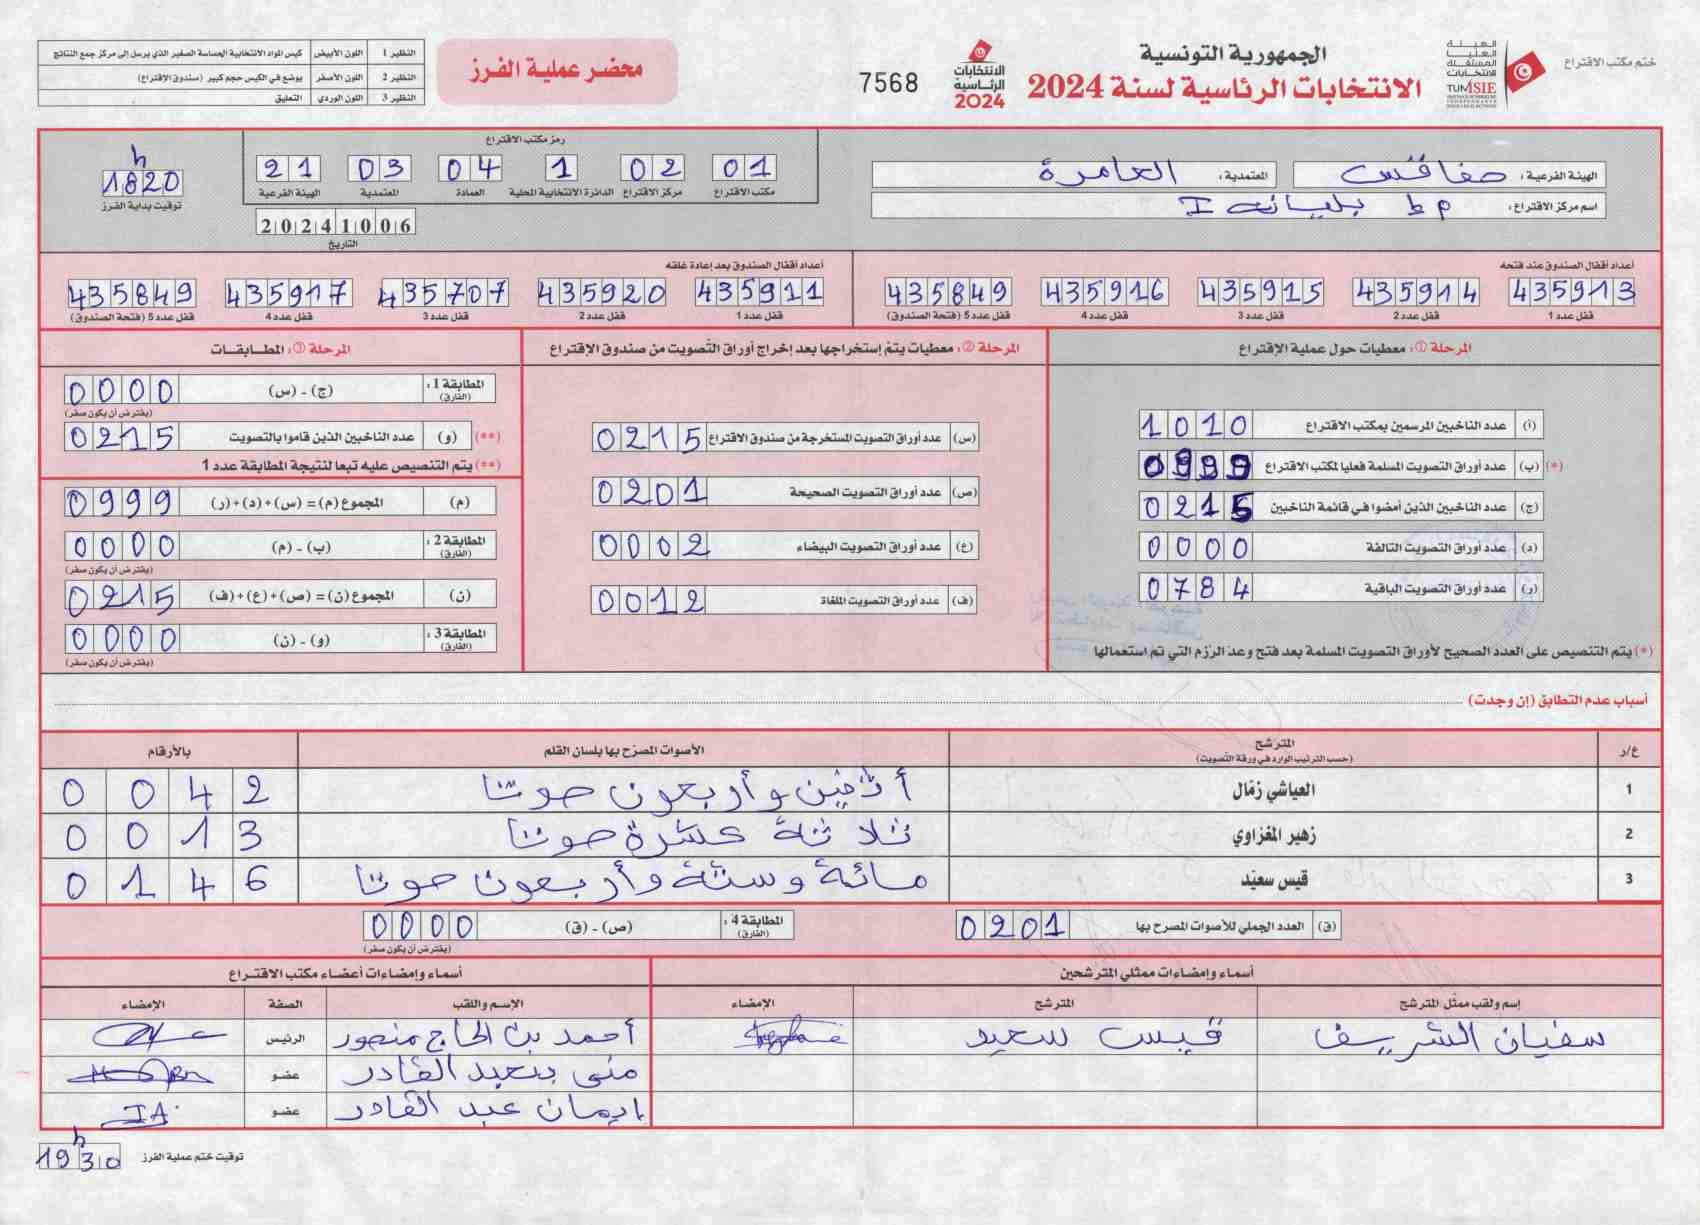 ختم مكتب الاقتراع
الهيئة العليا المستقلة للانتخابات
TUNISIE
الجمهورية التونسية
الانتخابات الرئاسية لسنة 2024
الانتخابات الرئاسية 2024
7568
محضر عملية الفرز
النظير 1 اللون الأبيض كيس المواد الانتخابية الحساسة الصغير الذي يرسل إلى مركز جمع النتائج
النظير 2 اللون الأصفر يوضع في الكيس حجم كبير (صندوق الاقتراع)
النظير 3 اللون الوردي التعليق
الهيئة الفرعية : صفاقس المعتمدية : العامرة
اسم مركز الاقتراع : م ط بليانة I
رمز مكتب الاقتراع
01 02 1 04 03 21
مكتب الاقتراع مركز الاقتراع الدائرة الانتخابية المحلية العمادة المعتمدية الهيئة الفرعية
18h20
توقيت بداية الفرز
20241006
التاريخ
أعداد أقفال الصندوق عند فتحه
435913 435914 435915 435916 435849
قفل عدد 1 قفل عدد 2 قفل عدد 3 قفل عدد 4 قفل عدد 5 (فتحة الصندوق)
أعداد أقفال الصندوق بعد إعادة غلقه
435911 435920 435707 435917 435849
قفل عدد 1 قفل عدد 2 قفل عدد 3 قفل عدد 4 قفل عدد 5 (فتحة الصندوق)
المرحلة ①: معطيات حول عملية الإقتراع
(أ) عدد الناخبين المرسمين بمكتب الاقتراع 1010
(*) (ب) عدد أوراق التصويت المسلمة فعليا لمكتب الاقتراع 0999
(ج) عدد الناخبين الذين أمضوا في قائمة الناخبين 0215
(د) عدد أوراق التصويت التالفة 0000
(ر) عدد أوراق التصويت الباقية 0784
(*) يتم التنصيص على العدد الصحيح لأوراق التصويت المسلمة بعد فتح وعد الرّزم التي تم استعمالها
المرحلة ②: معطيات يتم إستخراجها بعد إخراج أوراق التصويت من صندوق الإقتراع
(س) عدد أوراق التصويت المستخرجة من صندوق الاقتراع 0215
(ص) عدد أوراق التصويت الصحيحة 0201
(ع) عدد أوراق التصويت البيضاء 0002
(ف) عدد أوراق التصويت الملغاة 0012
المرحلة ③: المطابقات
المطابقة 1 : (الفارق) (ج) - (س) 0000
(يفترض أن يكون صفر)
(**) (و) عدد الناخبين الذين قاموا بالتصويت 0215
(**) يتم التنصيص عليه تبعا لنتيجة المطابقة عدد 1
(م) المجموع (م) = (س)+(د)+(ر) 0999
المطابقة 2 : (الفارق) (ب) - (م) 0000
(يفترض أن يكون صفر)
(ن) المجموع (ن) = (ص)+(ع)+(ف) 0215
المطابقة 3 : (الفارق) (و) - (ن) 0000
(يفترض أن يكون صفر)
أسباب عدم التطابق (إن وجدت)
ع/ر المترشح (حسب الترتيب الوارد في ورقة التصويت) الأصوات المصرّح بها بلسان القلم بالأرقام
1 العياشي زمّال أثنين وأربعون صوتا 0042
2 زهير المغزاوي ثلاثة عشرة صوتا 0013
3 قيس سعيّد مائة وستة وأربعون صوتا 0146
(ق) العدد الجملي للأصوات المصرح بها 0201
المطابقة 4 : (الفارق) (ص) - (ق) 0000
(يفترض أن يكون صفر)
أسماء وإمضاءات ممثلي المترشحين
إسم ولقب ممثّل المترشح المترشح الإمضاء
سفيان الشريف قيس سعيد
أسماء وإمضاءات أعضاء مكتب الاقتراع
الإسم واللقب الصفة الإمضاء
أحمد بن الحاج منصور الرئيس
منى بنعبد القادر عضو
إيمان عبد القادر عضو IA
توقيت ختم عملية الفرز 19h30